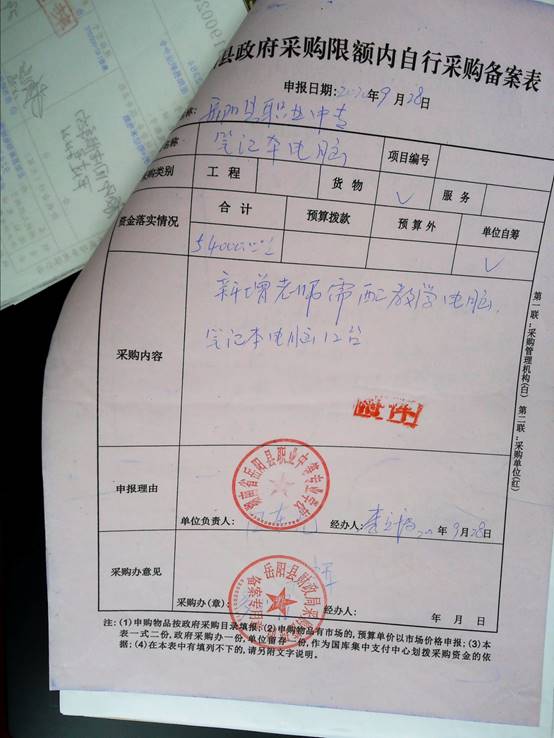 县政府采购限额内自行采购备案表
申报日期:2020年9月28日
称: 岳阳县职业中专
名称: 笔记本电脑 项目编号
采购类别 工程 货物 √ 服务
资金落实情况 合计 预算拨款 预算外 单位自筹
54000.00元 √
采购内容 新增老师需配教学电脑,
笔记本电脑12台
附件
第一联:采购管理机构(白) 第二联:采购单位(红)
湖南省岳阳县职业中等专业学校
申报理由
单位负责人: 经办人: 年9月28日
采购办意见
岳阳县财政局采购
备案专用
采购办(章): 经办人: 年 月 日
注:(1)申购物品按政府采购目录填报;(2)申购物品有市场的,预算单价以市场价格申报;(3)本
表一式二份,政府采购办一份,单位留存一份,作为国库集中支付中心划拨采购资金的依
据;(4)在本表中有填列不下的,请另附文字说明。